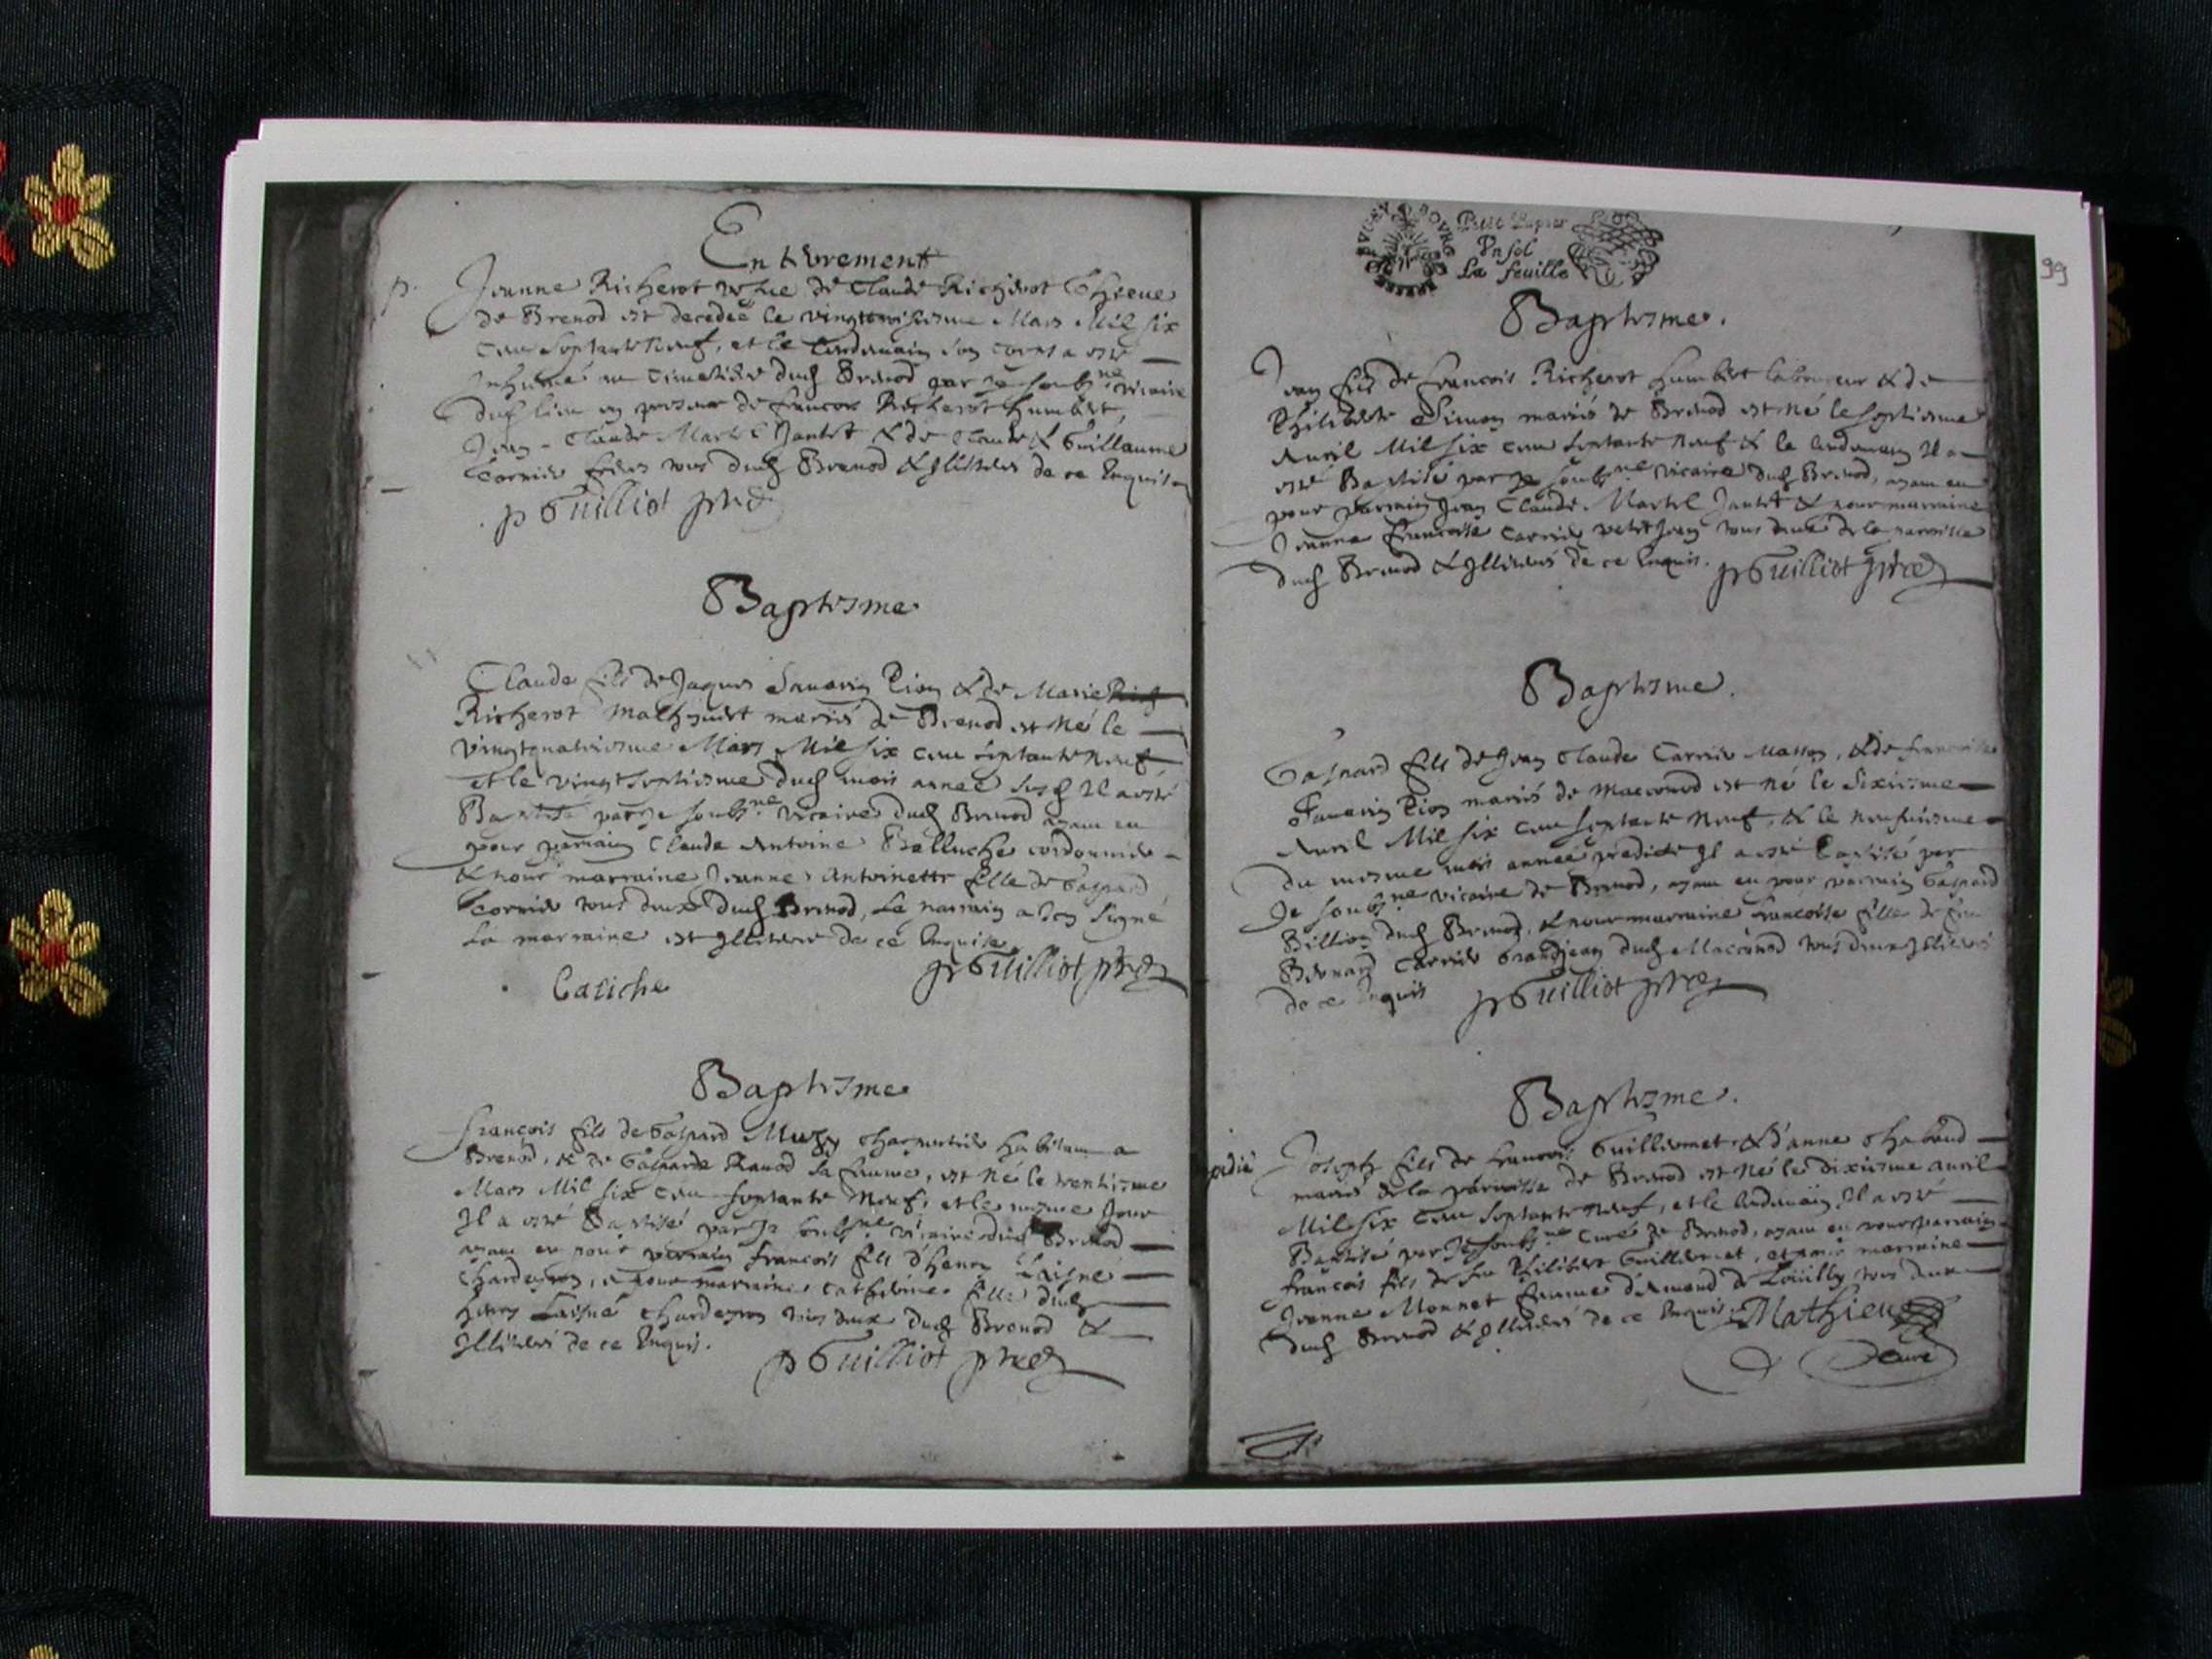 Enterrement
p. Jeanne Richerot vefue de Claude Richerot
de Brenod est decedée le vingttroisiesme Mars Mil six
cens septante neuf, et le lendemain son corps a esté
Inhumé au cimetiere dud Brenod par je soubsne vicaire
dud lieu en presence de francois Richerot humbert,
Jean-Claude Martel Jantet & de Claude & Guillaume
Carrier freres tous dud Brenod & Illiteres de ce Enquis
p Guilliot pbre
Baptesme
Claude fils de Jaques Sauarin Pion & de Marie
Richerot mariés de Brenod est Né le
vingtquatriesme Mars Mil six cens septante Neuf
et le vingtseptiesme dud mois année susd Il a esté
Baptisé par je soubsne vicaire dud Brenod ayant eu
pour parrain Claude Antoine Balluche cordonnier
& pour marraine Jeanne Antoinette fille de Gaspard
Carrier tous deux dud Brenod, Le parrain a Icy signé
La marraine est Illitere de ce Enquise
p Guilliot pbre
Baptesme
francois fils de Gaspard Muzy charpentier habitant a
Brenod, & de Gasparde sa femme, est Né le trentiesme
Mars Mil six cens septante Neuf, et le mesme Jour
Il a esté Baptisé par je soubsne vicaire dud Brenod
ayant eu pour parrain francois fils d'henry Laisné
Chardeyron, & pour marraine Catherine fille dud
henry Laisné Chardeyron tous deux dud Brenod &
Illiteres de ce Enquis.
p Guilliot pbre
99
Petit Papier
Vn sol
La feuille
Baptesme.
Jean fils de francois Richerot humbert laboureur & de
Philiberte Simon mariés de Brenod est né le septiesme
Auril Mil six cens septante neuf & le lendemain Il a
esté Baptisé par je soubsne vicaire dud Brenod, ayant eu
pour parrain Jean Claude Martel Jantet & pour marraine
Jeanne francoise Carrier petitjean tous deux de la parroisse
dud Brenod & Illiteres de ce Enquis. p Guilliot pbre
Baptesme.
Gaspard fils de Jean Claude Carrier Masson, & de francoise
Sauarin Pion mariés de Macconod est né le sixiesme
Auril Mil six cens septante neuf, & le neufuiesme
du mesme mois année predicte Il a esté Baptisé par
Je soubsne vicaire de Brenod, ayant eu pour parrain Gaspard
Billion dud Brenod, & pour marraine francoise fille de feu
Bernard Carrier Grandjean dud Macconod tous deux Illiteres
de ce Enquis p Guilliot pbre
Baptesme.
Joseph fils de francois Guillermet & d'anne Chabaud
mariés de la parroisse de Brenod est Né le dixiesme auril
Mil six cens septante neuf, et le lendemain Il a esté
Baptisé par Je soubsne Curé de Brenod, ayant eu pour parrain
francois fils de feu Philibert Guillermet, et pour marraine
Jeanne Monnet femme d'Aimond de Louilly tous deux
dud Brenod & Illiteres de ce Enquis. Mathieu
Curé